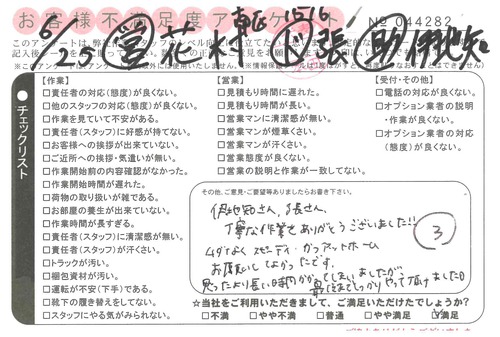 お客様不満足度アンケート
№ 044282
6/25 営 花木 転 1516 代 張 助 伊地知
チェックリスト
【作業】
□責任者の対応(態度)が良くない。
□他のスタッフの対応(態度)が良くない。
□作業を見ていて不安がある。
□責任者(スタッフ)に好感が持てない。
□お客様への挨拶が出来ていない。
□ご近所への挨拶・気遣いが無い。
□作業開始前の内容確認がなかった。
□作業開始時間が遅れた。
□荷物の取り扱いが雑である。
□お部屋の養生が出来ていない。
□作業時間が長すぎる。
□責任者(スタッフ)に清潔感が無い。
□責任者(スタッフ)が汗くさい。
□トラックが汚い。
□梱包資材が汚い。
□運転が不安(下手)である。
□靴下の履き替えをしてない。
□スタッフにやる気がみられない。
【営業】
□見積もり時間に遅れた。
□見積もり時間が長い。
□営業マンに清潔感が無い。
□営業マンが煙草くさい。
□営業マンが汗くさい。
□営業態度が良くない。
□営業の説明と作業が一致してない。
【受付・その他】
□電話の対応が良くない。
□オプション業者の説明
・作業が良くない。
□オプション業者の対応
(態度)が良くない。
その他、ご意見・ご要望等ありましたらお書き下さい。
伊地知さん、張さん、
丁寧な作業をありがとうございました!!
ムダなく スピーディ かつ アットホーム
お願いしてよかったです。
思ったより長い時間かかってしまいましたが
最後までしっかりやって頂けました
3
☆当社をご利用いただきまして、ご満足いただけたでしょうか?
□不満 □やや不満 □普通 □やや満足 ☑満足